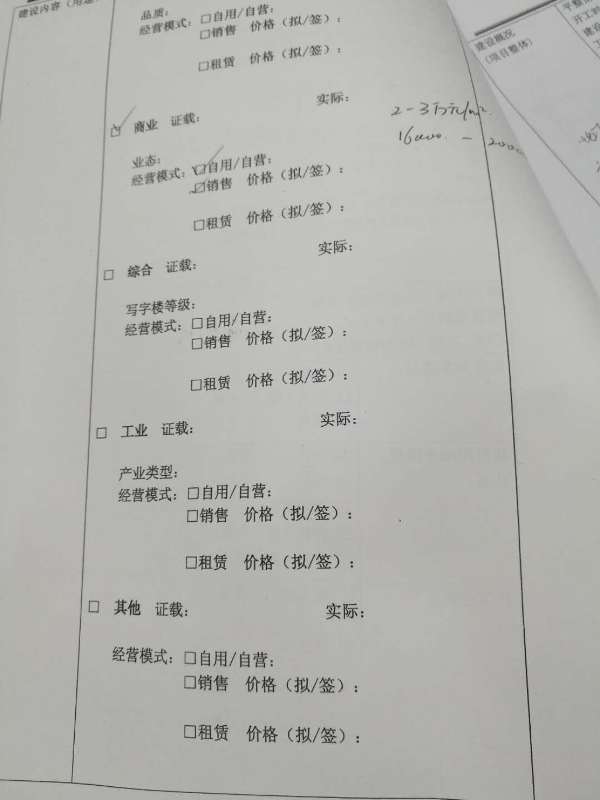 建设内容（用途
品质：
经营模式：□自用/自营：
□销售 价格（拟/签）：
□租赁 价格（拟/签）：
☑ 商业 证载： 实际：
2-3万元/m²
16000 - 2000
业态：
经营模式：☑自用/自营：
☑销售 价格（拟/签）：
□租赁 价格（拟/签）：
□ 综合 证载： 实际：
写字楼等级：
经营模式：□自用/自营：
□销售 价格（拟/签）：
□租赁 价格（拟/签）：
□ 工业 证载： 实际：
产业类型：
经营模式：□自用/自营：
□销售 价格（拟/签）：
□租赁 价格（拟/签）：
□ 其他 证载： 实际：
经营模式：□自用/自营：
□销售 价格（拟/签）：
□租赁 价格（拟/签）：
建设概况
（项目整体）
平整
开工时
建设